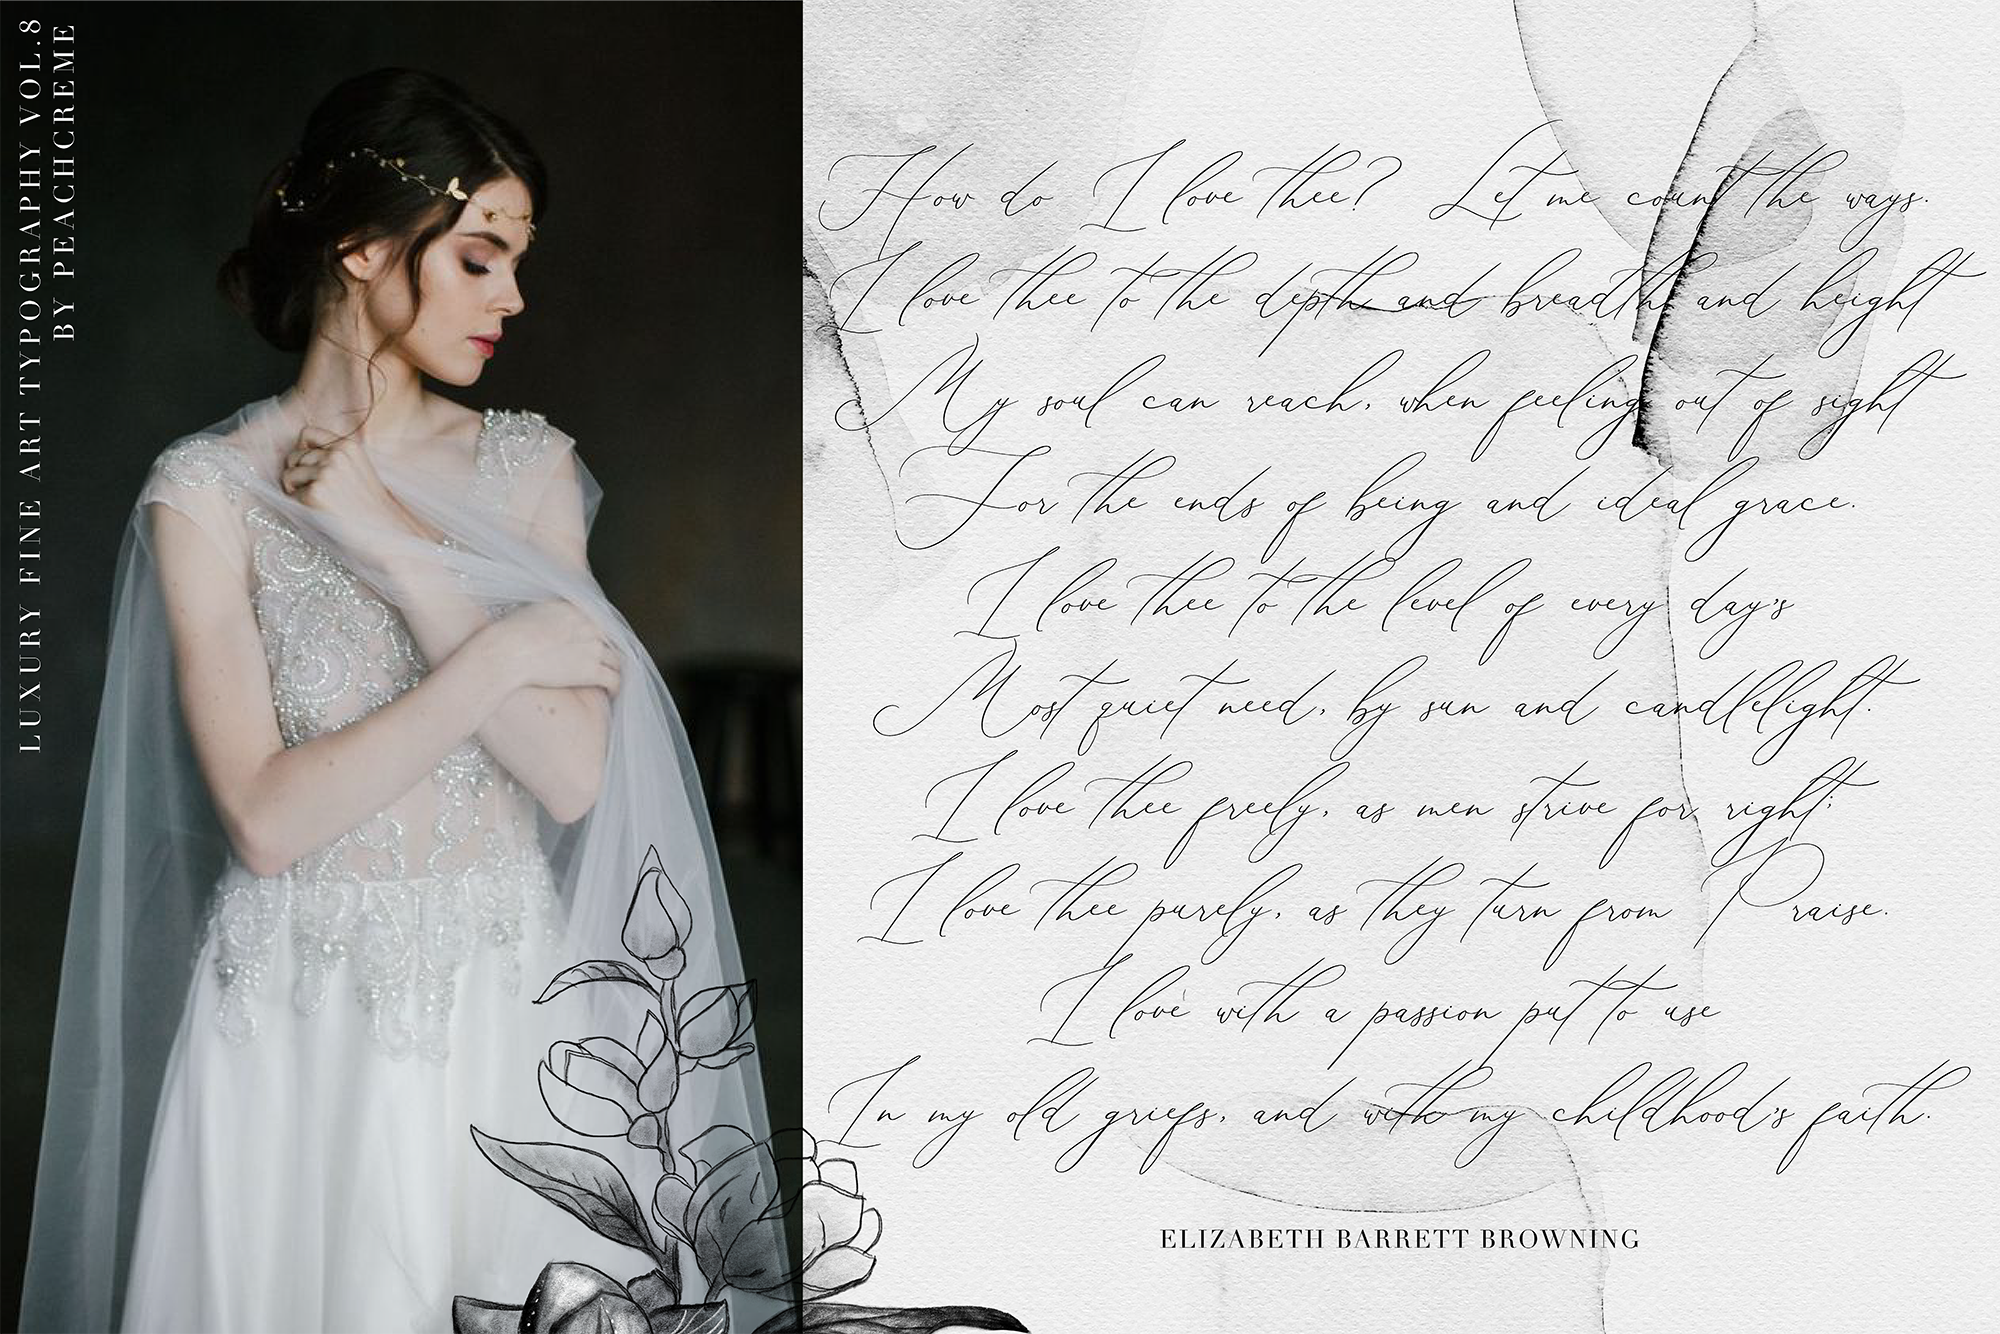 LUXURY FINE ART TYPOGRAPHY VOL.8
BY PEACHCREME
How do I love thee? Let me count the ways.
I love thee to the depth and breadth and height
My soul can reach, when feeling out of sight
For the ends of being and ideal grace.
I love thee to the level of every day's
Most quiet need, by sun and candlelight.
I love thee freely, as men strive for right;
I love thee purely, as they turn from Praise.
I love with a passion put to use
In my old griefs, and with my childhood's faith.
ELIZABETH BARRETT BROWNING